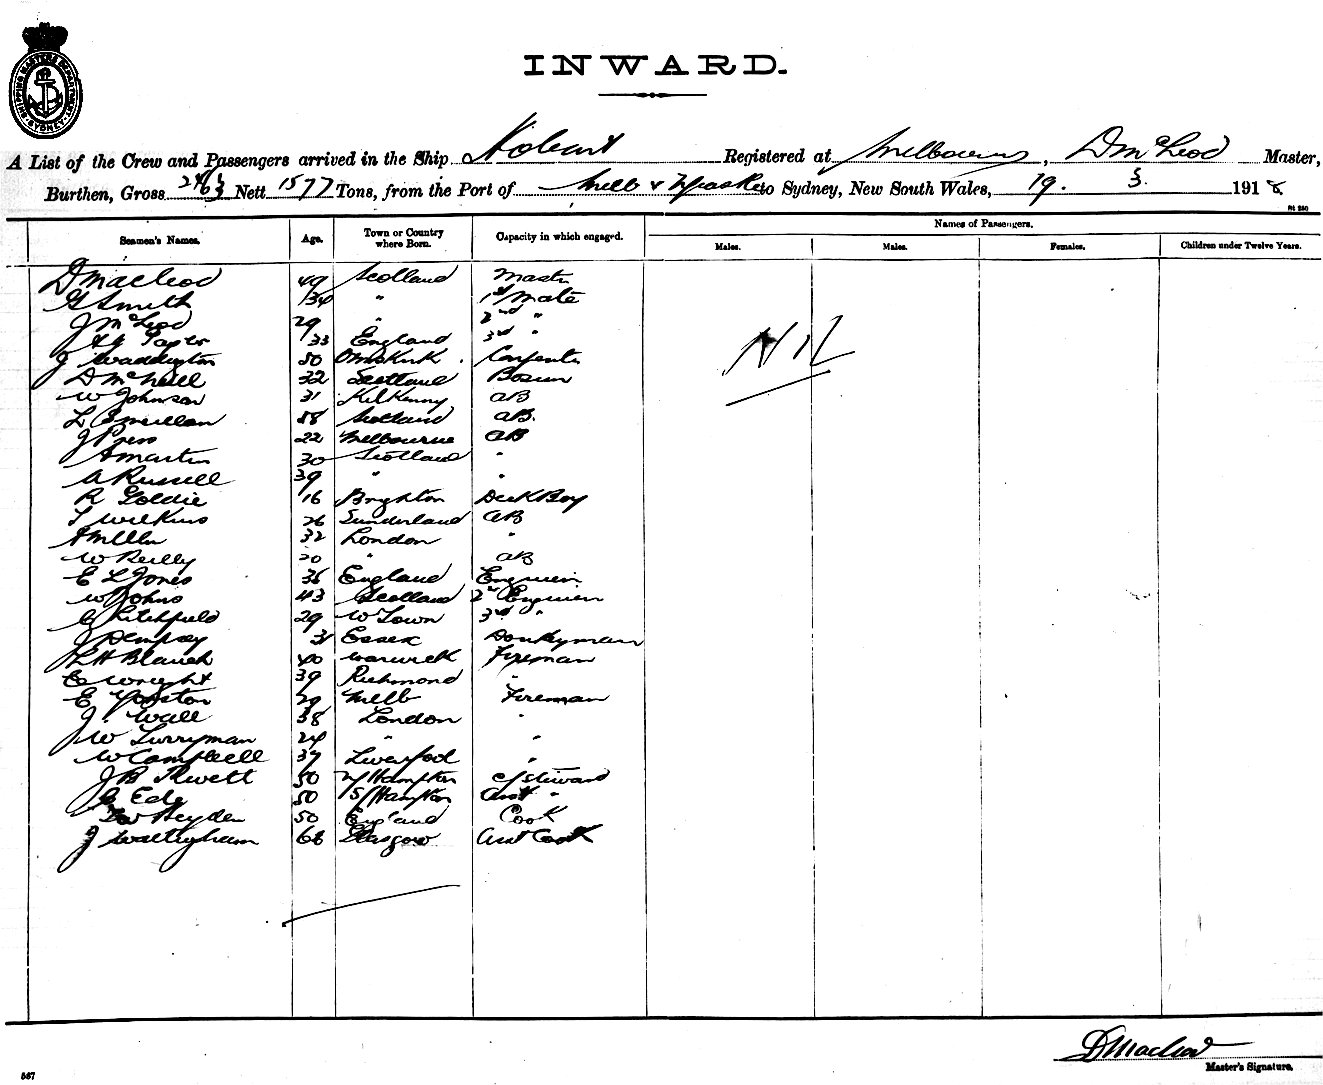 SHIPPING MASTER'S DEPARTMENT SYDNEY
INWARD.
A List of the Crew and Passengers arrived in the Ship Hobart Registered at Melbourne, D McLeod Master,
Burthen, Gross Nett 1577 Tons, from the Port of Melb & to Sydney, New South Wales, 19. 3. 1918
Seamen's Names. Age. Town or Country where Born. Capacity in which engaged. Names of Passengers.
Males. Males. Females. Children under Twelve Years.
D Macleod 49 Scotland Master
G Smith 34 " 1st Mate
J McLeod 29 " 2nd "
Taylor 33 England 3rd "
J Waddington 50 Ormskirk Carpenter
D McNeill 32 Scotland Bosun
W Johnson 31 Kilkenny AB
L 58 Scotland AB.
J 22 Melbourne AB
A Martin 30 Scotland "
A Russell 39 " "
R Goldie 16 Brighton Deck Boy
T Wilkins 26 Sunderland AB
A Miller 32 London "
W Reilly 20 " AB
E L Jones 36 England Engineer
W Johns 43 Scotland 2nd Engineer
C Litchfield 29 W Town 3rd "
J Dempsey 31 Essex Donkeyman
L H Blanch 40 Warwick Fireman
C Wright 39 Richmond "
E Yorston 29 Melb Fireman
J. Wall 38 London "
W Lurryman 24 " "
W Campbell 37 Liverpool "
J B 50 N/Hampton C/Steward
G Ede 50 S/Hampton Asst "
Heyden 50 England Cook
J Waltingham 68 Glasgow Asst Cook
Nil
D Macleod
Master's Signature.
567